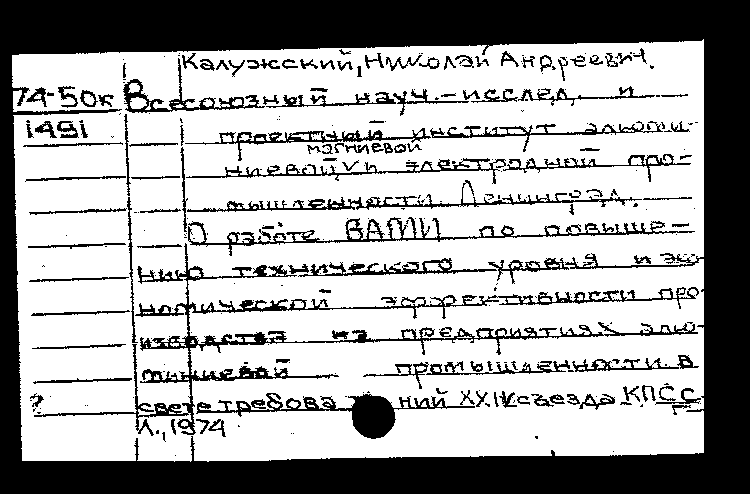 Калужский, Николай Андреевич.
74-50к Всесоюзный науч.-исслед. и
1491 проектный институт алюми-
магниевой
ниевой, V и электродной про-
мышленности. Ленинград.
О работе ВАМИ по повыше-
нию технического уровня и эко-
номической эффективности про-
изводства на предприятиях алю-
миниевой промышленности в
? свете требований XXIV съезда КПСС
Л., 1974